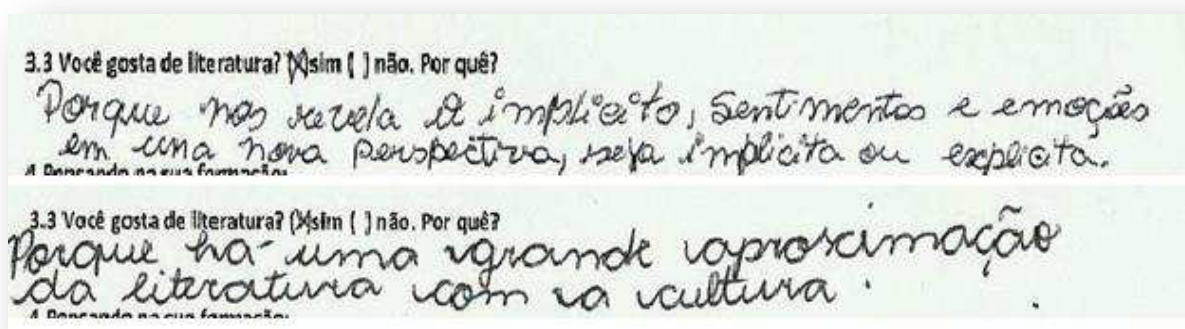 3.3 Você gosta de literatura? (X) sim ( ) não. Por quê?
Porque nos revela o implicito, sentimentos e emoções
em uma nova perspectiva, seja implicita ou explicita.
4 Pensando na sua formação:
3.3 Você gosta de literatura? (X) sim ( ) não. Por quê?
Porque há uma grande aproximação
da literatura com a cultura.
4 Pensando na sua formação: